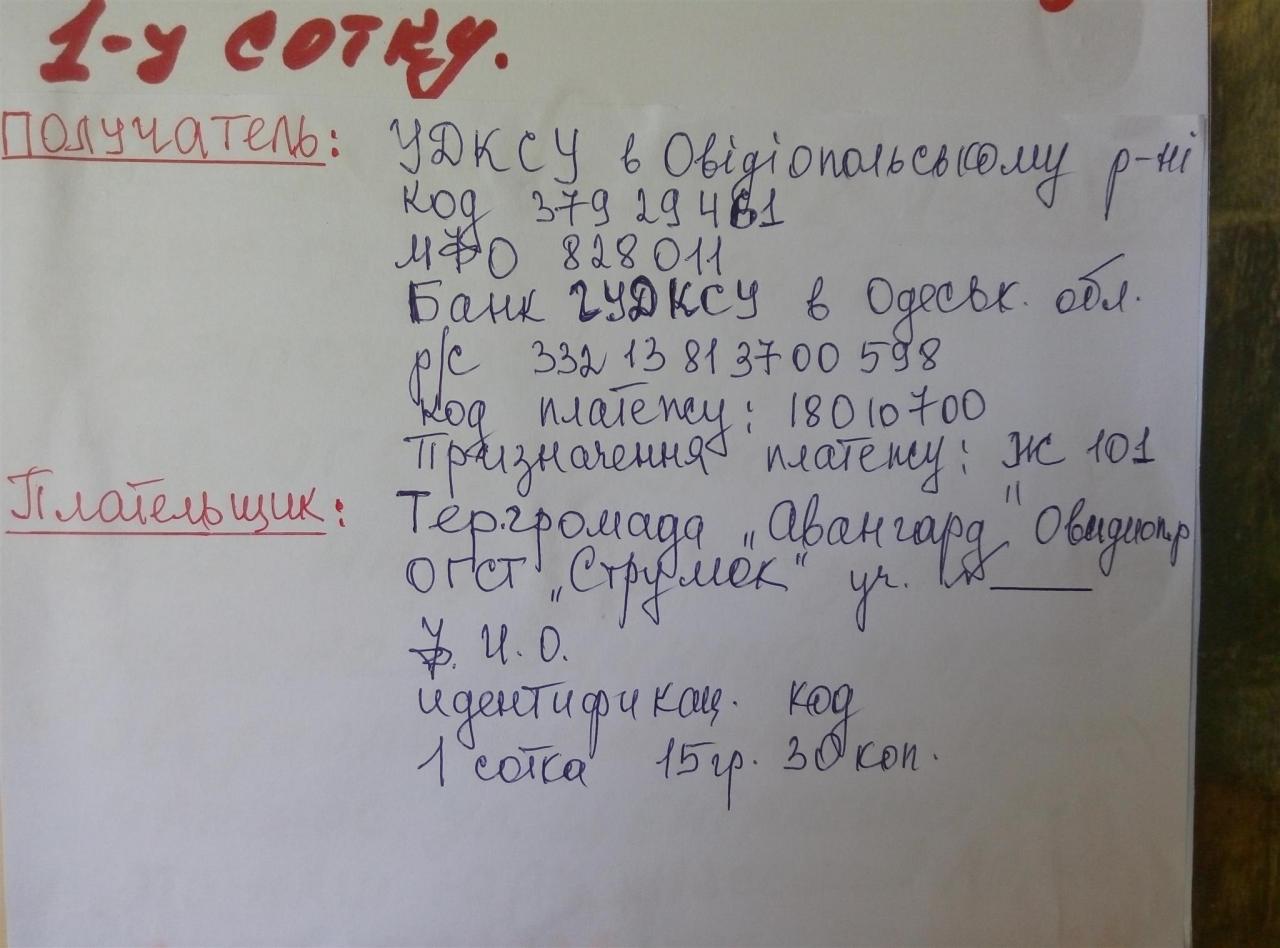 1-у сотку.
Получатель: УДКСУ в Овідіопольському р-ні
Код 379 29 461
МФО 828 011
Банк ГУДКСУ в Одеськ. обл.
р/с 332 13 81 37 00 598
код платежу: 18010700
Призначення платежу: Ж 101
Плательщик: Тер.громада „Авангард" Овидиоп.р
ОГСТ „Струмок" уч. №____
Ф. И. О.
идентификац. код
1 сотка 15гр. 30 коп.